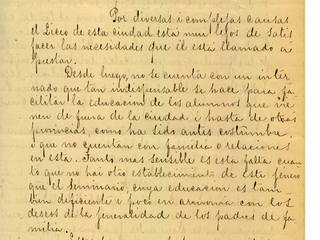 Por diversas i complejas causas
el Liceo de esta ciudad está mui lejos de satis
facer las necesidades que él está llamado a
prestar.
Desde luego, no se cuenta con un inter
nado que tan indispensable se hace para fa
cilitar la educacion de los alumnos que vie
nen de fuera de la ciudad i hasta de otras
provincias, como ha sido antes costumbre,
i que no cuentan con familia o relaciones
en esta. Tanto mas sensible es esta falta cuan
to que no hai otro establecimiento de este jenero
que el seminario, cuya educacion es tam
bien deficiente i poco en armonia con los
deseos de la jeneralidad de los padres de fa
milia.